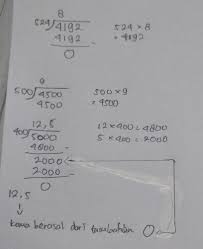 8
524 √4192   524 × 8
4192   = 4192
0
9
500 √4500   500 × 9
4500   = 4500
12,5
400 √5000   12 × 400 = 4800
4800   5 × 400 = 2000
2000
2000
0
12,5
↓
koma berasal dari tambahan 0